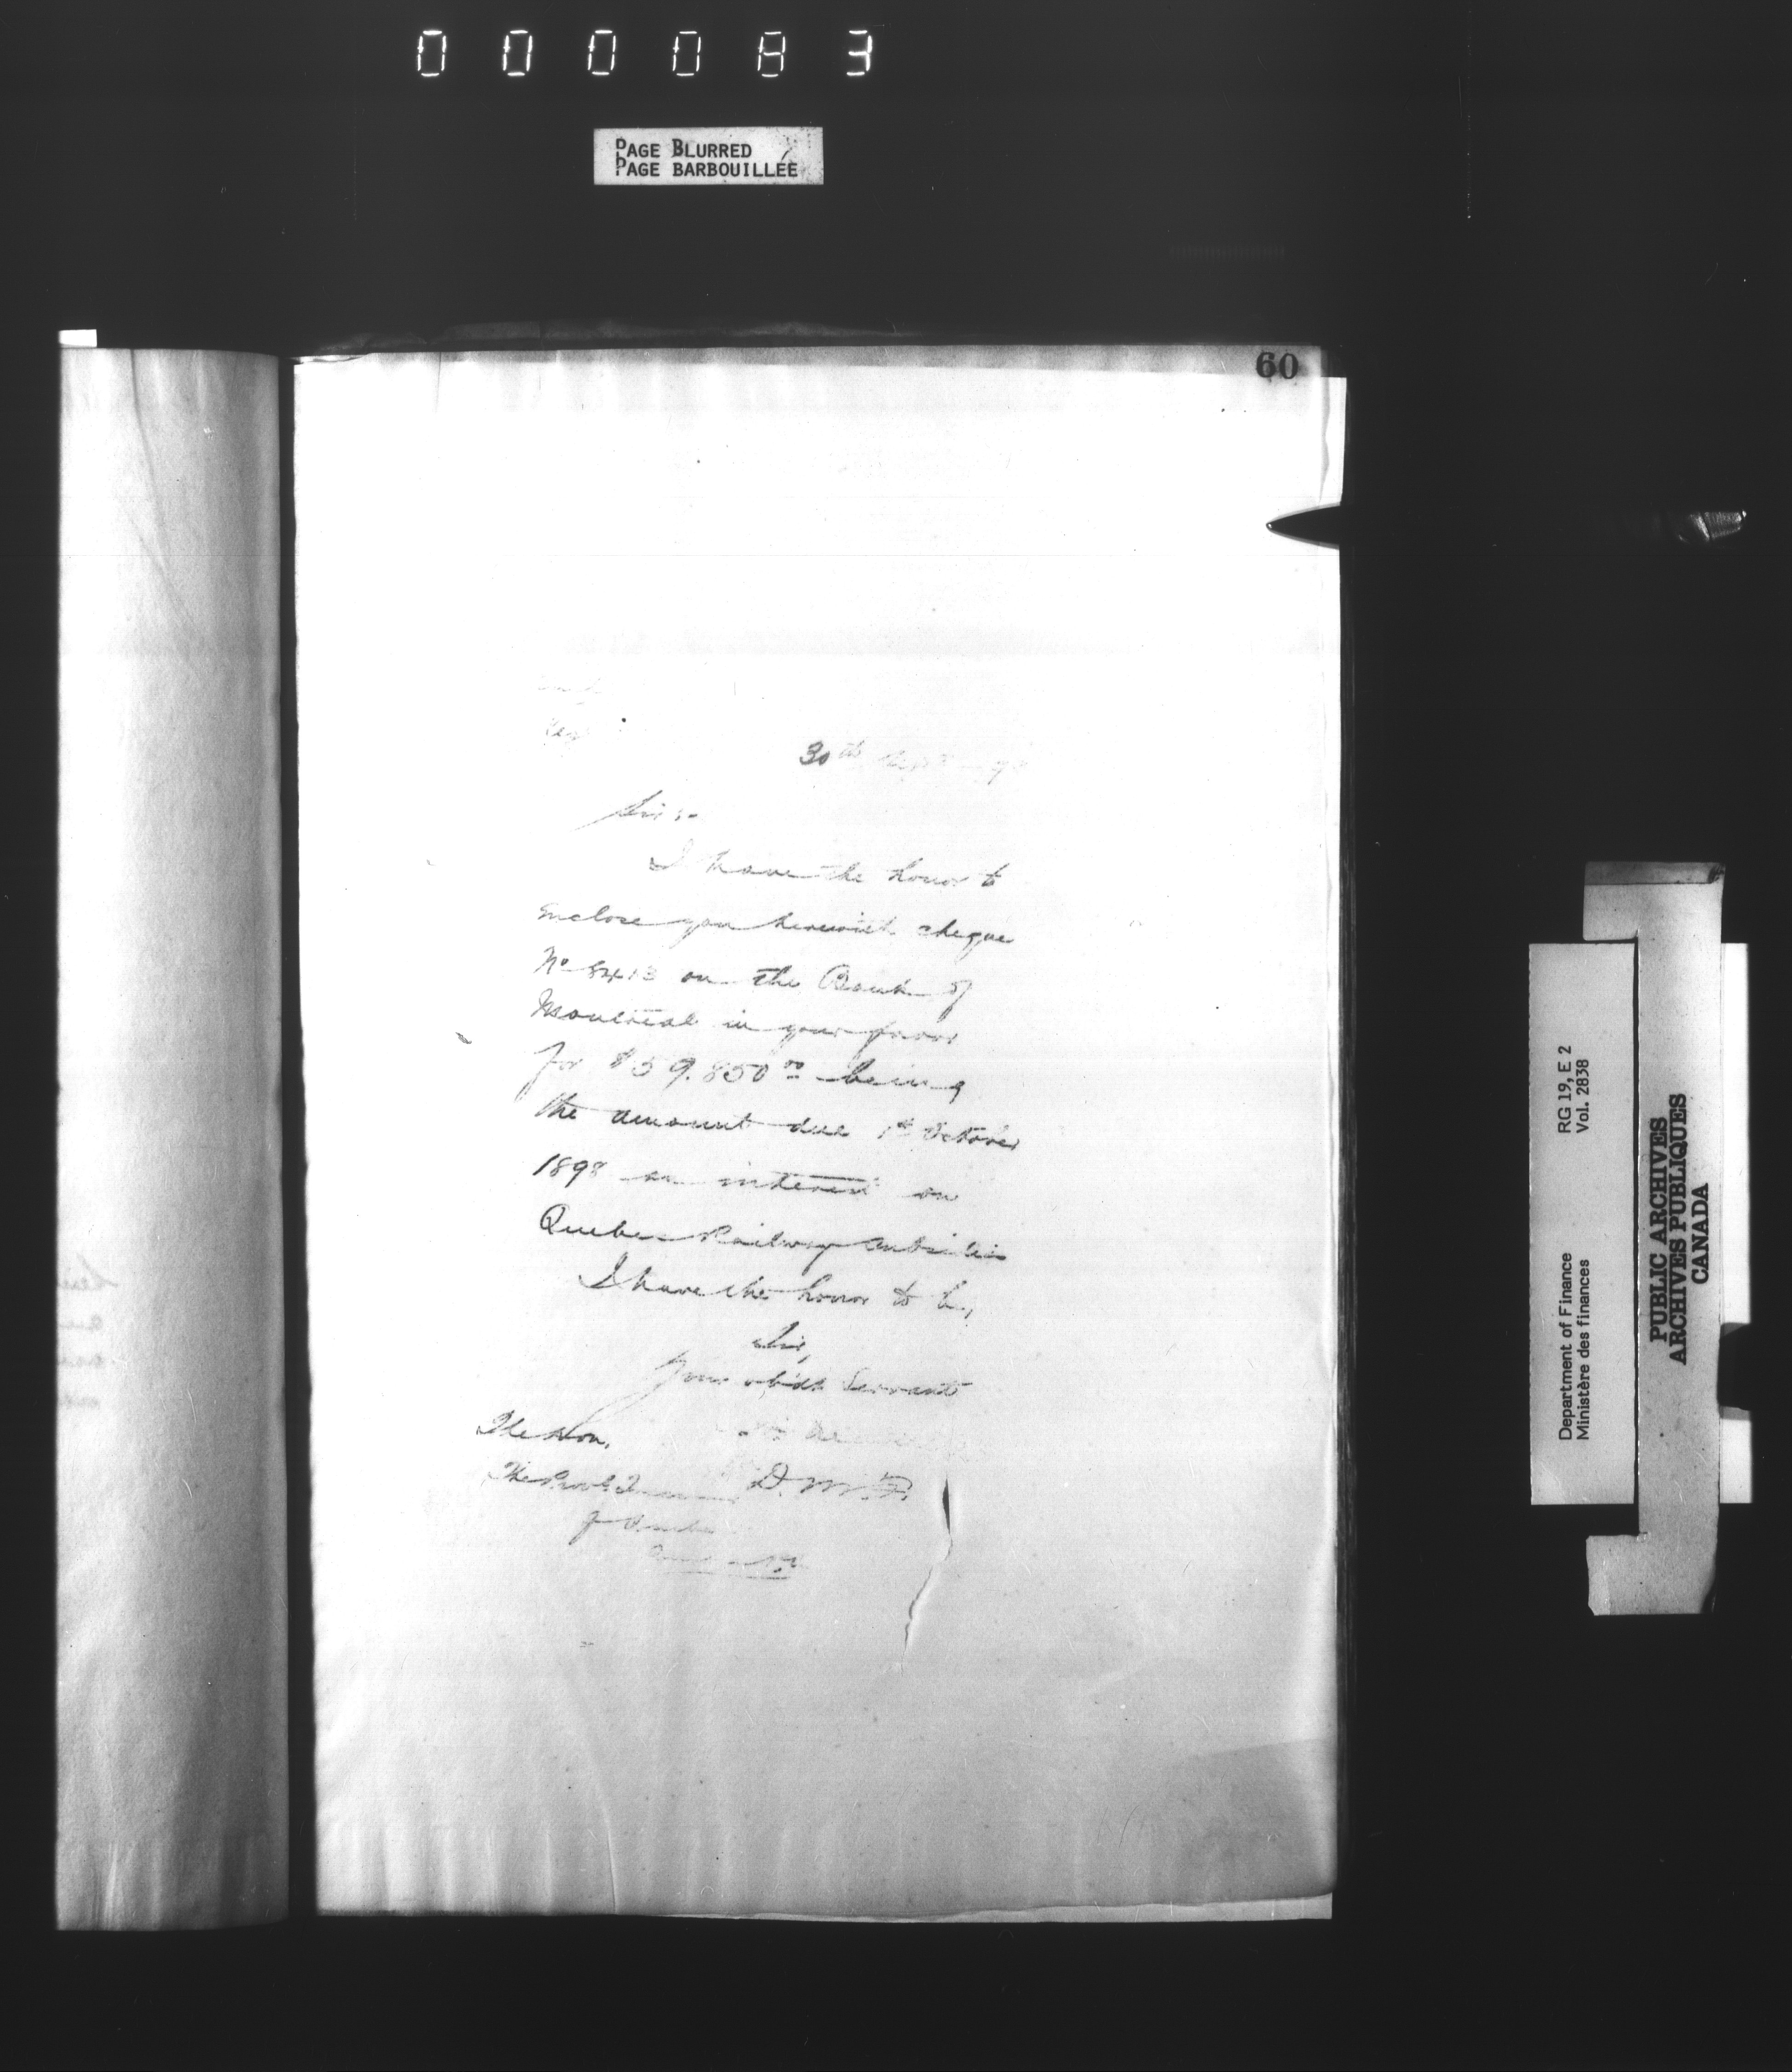 000083
PAGE BLURRED
PAGE BARBOUILLÉE
60
30th Sept 98
Sir:-
I have the honor to
enclose you herewith cheque
No 8413 on the Bank of
Montreal in your favor
for $59.850 00 being
the amount due 1st October
1898 on interest on
Quebec Railway Subsidies
I have the honor to be,
Sir,
Your obdt Servant
D.M.F.
The Hon.
The Prov'l Treasurer
of Quebec
RG 19, E 2
Vol. 2838
Department of Finance
Ministère des finances
PUBLIC ARCHIVES
ARCHIVES PUBLIQUES
CANADA